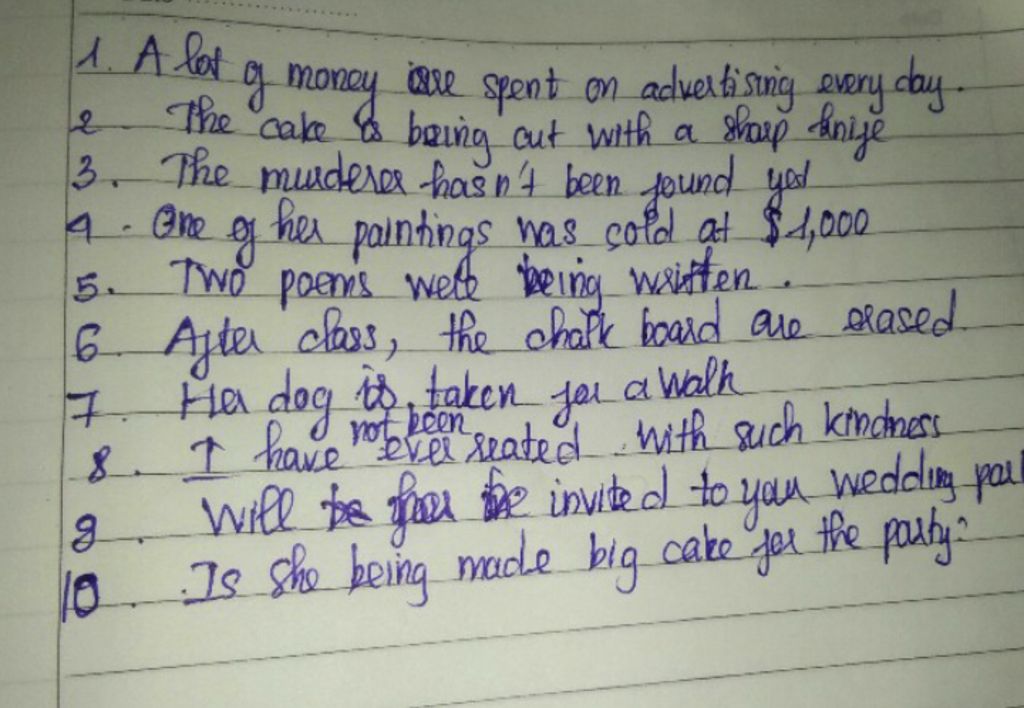 1. A lot of money are spent on advertising every day.
2. The cake is being cut with a sharp knife
3. The murderer hasn't been found yet
4. One of her paintings was sold at $1,000
5. Two poems were being written.
6. After class, the chalk board are erased
7. Her dog is taken for a walk
not been
8. I have ever reated with such kindness
9. Will be invited to your wedding
10. Is she being made big cake for the party?